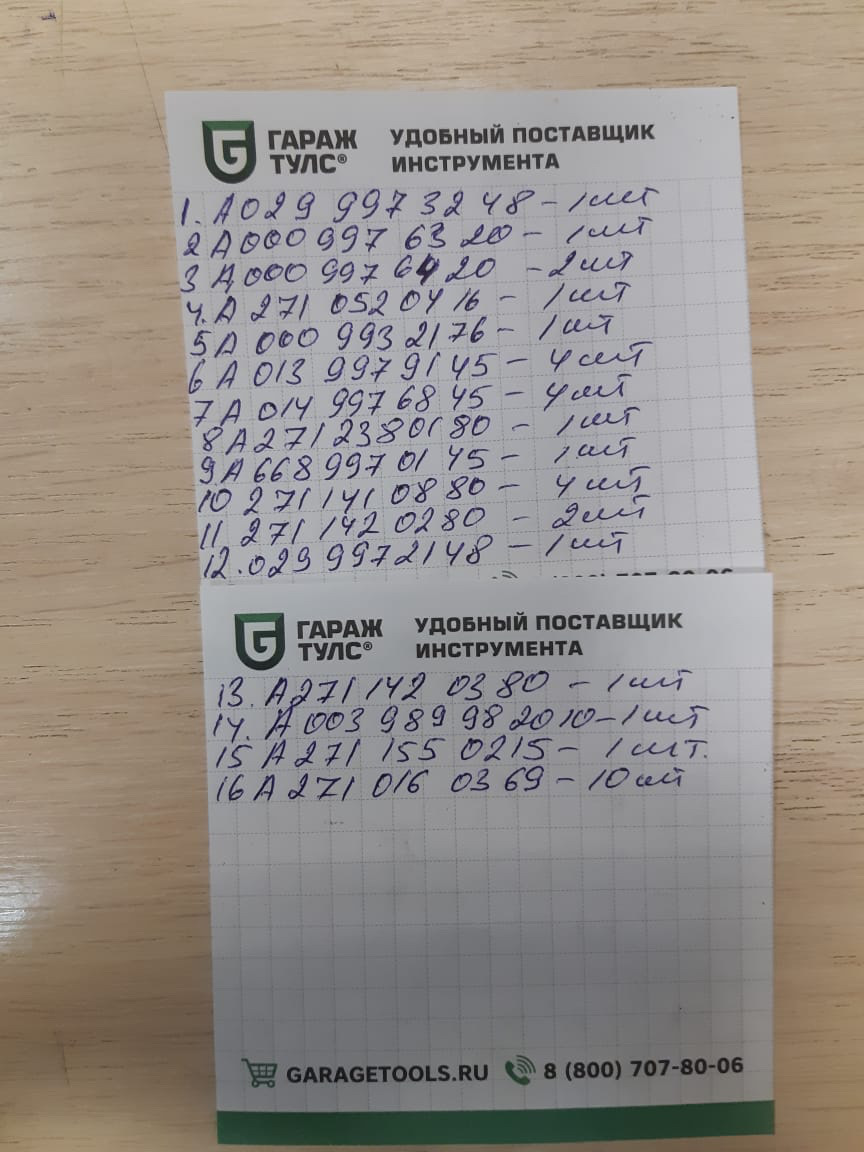 ГАРАЖ ТУЛС®
УДОБНЫЙ ПОСТАВЩИК ИНСТРУМЕНТА
1. А 029 997 32 48 – 1 шт
2 А 000 997 63 20 – 1 шт
3 А 000 997 64 20 – 2 шт
4. А 271 052 04 16 – 1 шт
5 А 000 993 21 76 – 1 шт
6 А 013 997 91 45 – 4 шт
7 А 014 997 68 45 – 4 шт
8 А 271 238 01 80 – 1 шт
9 А 668 997 01 45 – 1 шт
10 271 141 08 80 – 4 шт
11 271 142 02 80 – 2 шт
12. 029 997 21 48 – 1 шт
ГАРАЖ ТУЛС®
УДОБНЫЙ ПОСТАВЩИК ИНСТРУМЕНТА
13. А 271 142 03 80 – 1 шт
14. А 003 989 98 20 10 – 1 шт
15 А 271 155 02 15 – 1 шт.
16 А 271 016 03 69 – 10 шт
GARAGETOOLS.RU 8 (800) 707-80-06